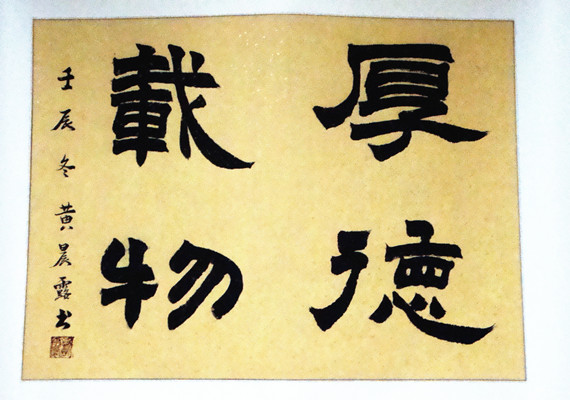 厚德
載物
壬辰冬黄晨露书